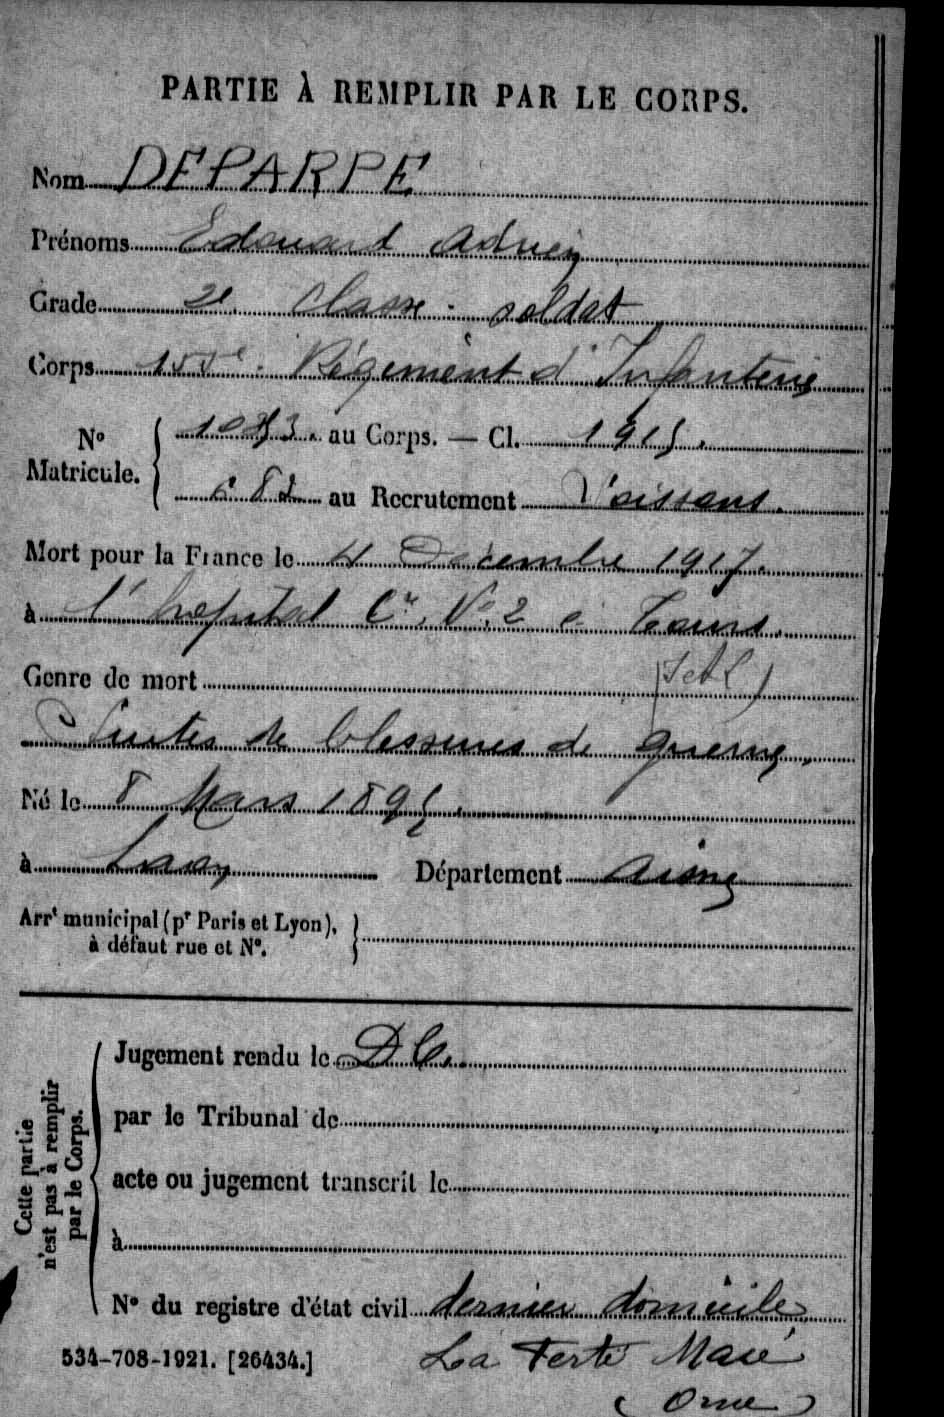 PARTIE À REMPLIR PAR LE CORPS.
Nom DEPARPE
Prénoms Edouard Adrien
Grade 2e classe - soldat
Corps 155e Régiment d'Infanterie
No Matricule. 1083. au Corps. — Cl. 1915.
682 au Recrutement Soissons.
Mort pour la France le 4 Décembre 1917.
à l'hôpital Cre. No. 2 à Tours.
(I et L)
Genre de mort
Suites de blessures de guerre.
Né le 8 Mars 1895.
à Département Aisne
Arrt municipal (pr Paris et Lyon),
à défaut rue et No.
Cette partie
n'est pas à remplir
par le Corps.
Jugement rendu le DC.
par le Tribunal de
acte ou jugement transcrit le
à
No du registre d'état civil dernier domicile
534-708-1921. [26434.] La Ferté Macé
(Orne)